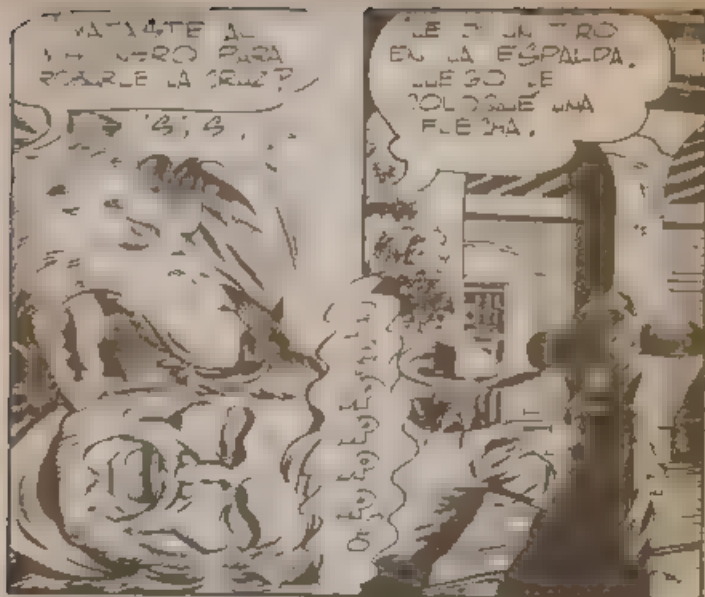 ¿MATASTE AL
PARA
ROBARLE LA CRUZ?
SÍ, SÍ,
LE DI UN TIRO
EN LA ESPALDA,
LUEGO LE
COLOQUÉ UNA
FLECHA.